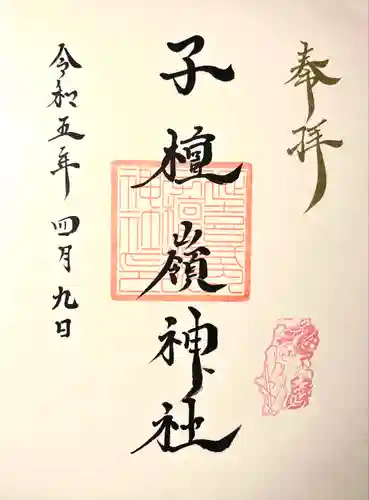 奉拝
子檀嶺神社
令和五年四月九日